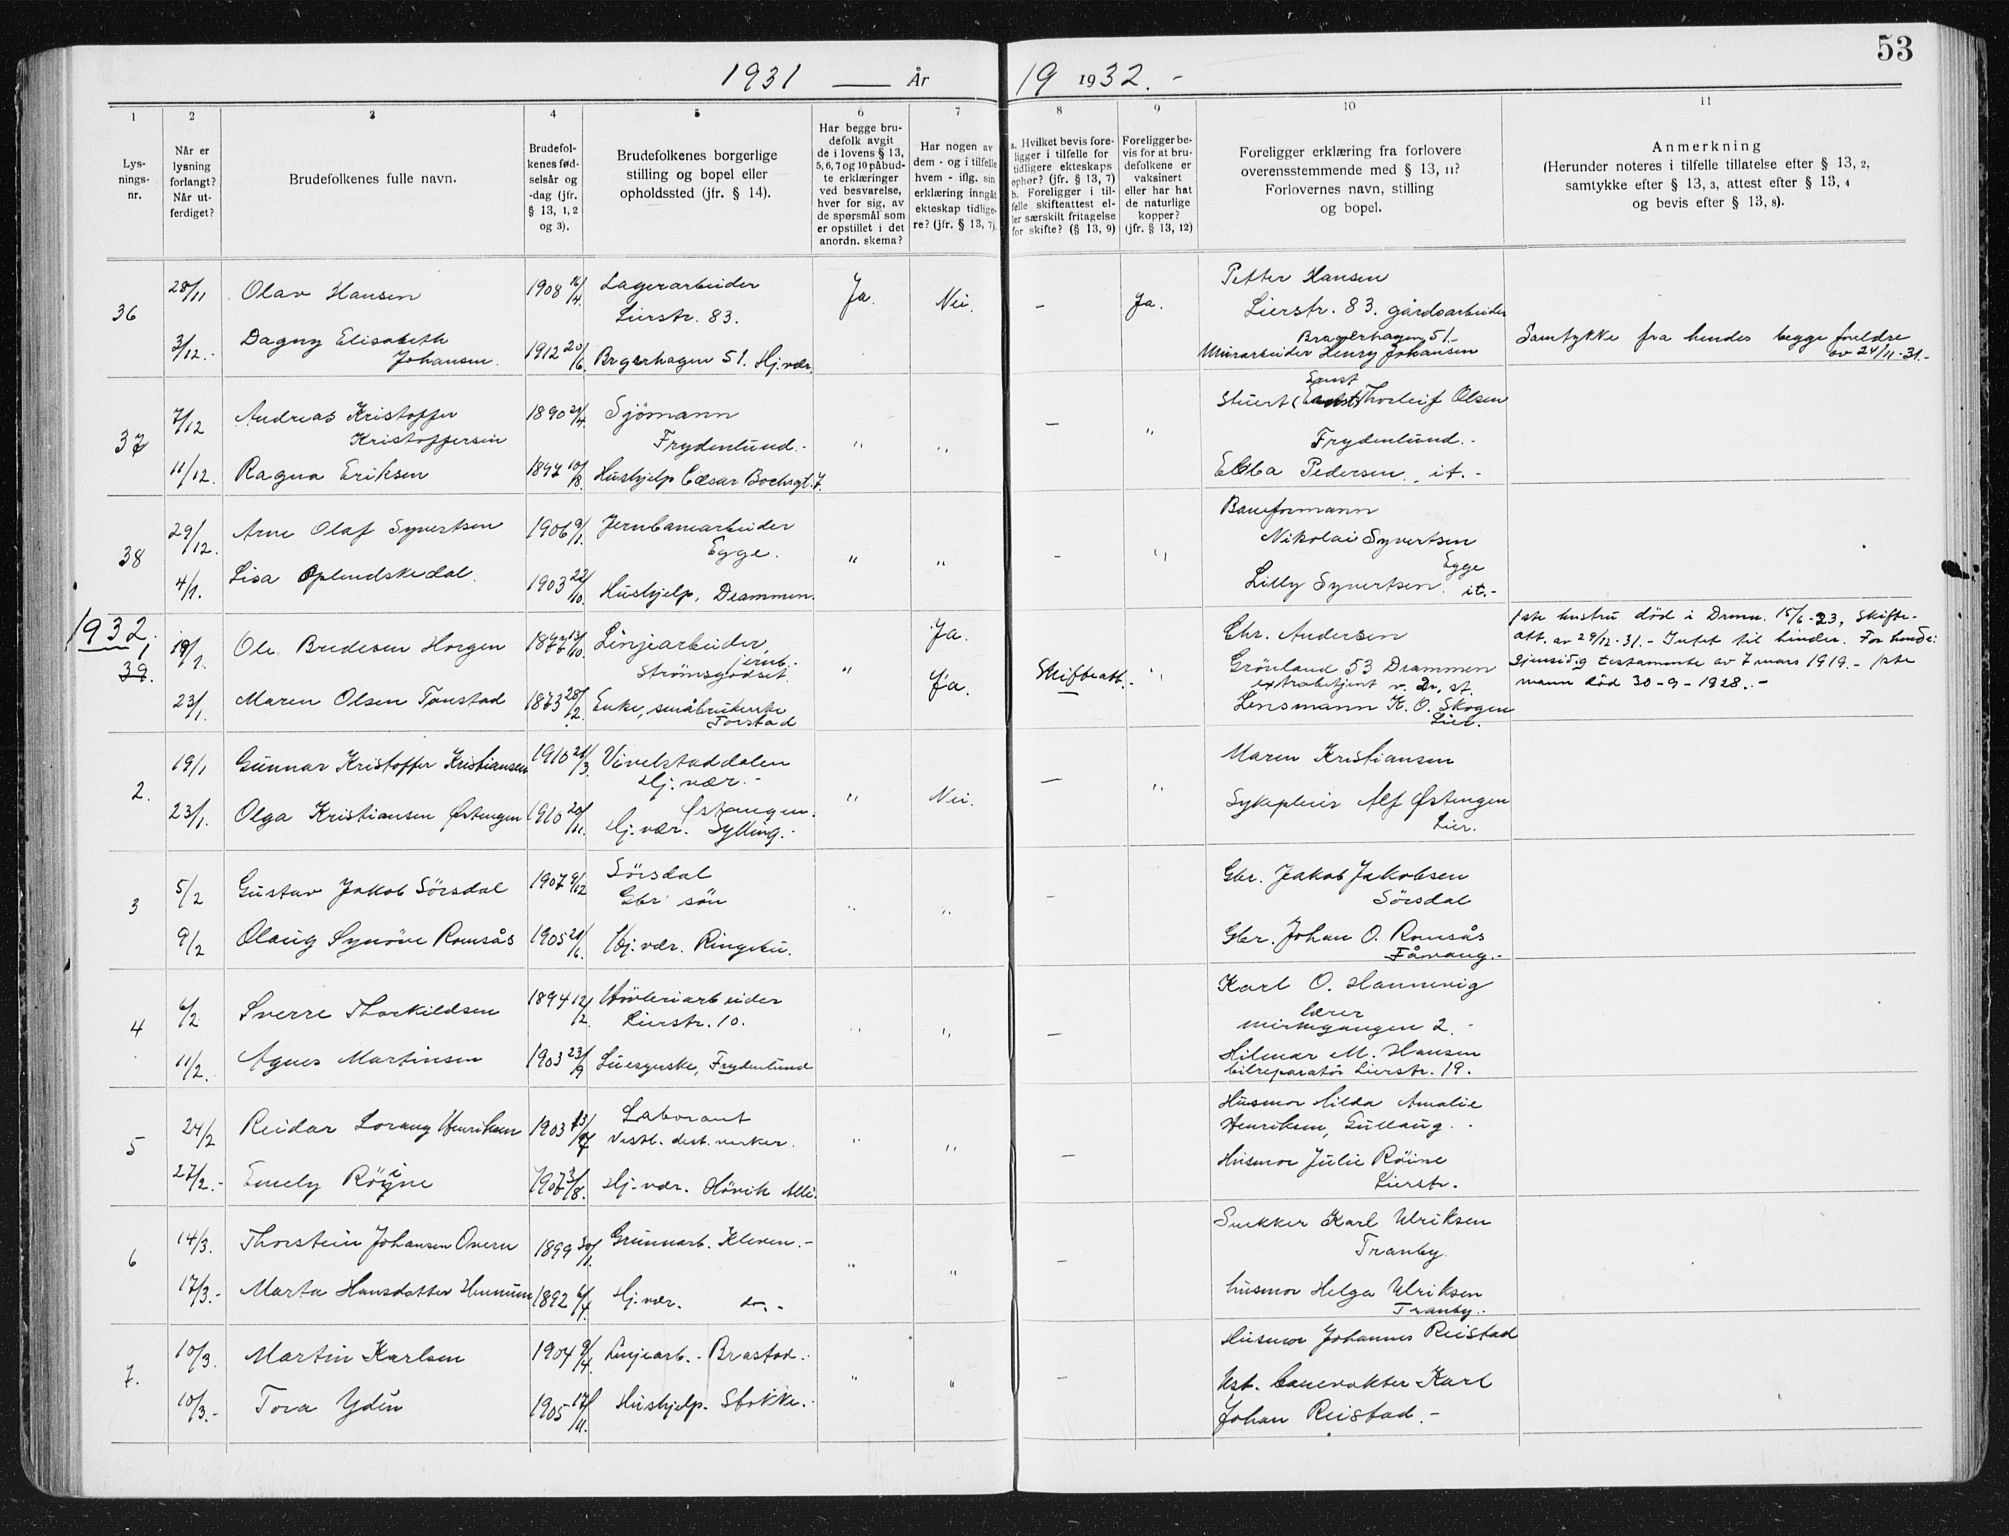 53
1931 — År 19 1932.-
1 2 3 4 5 6 7 8 9 10 11
Lys-
nings-
nr.
Når er
lysning
forlangt?
Når ut-
ferdiget?
Brudefolkenes fulle navn.
Brudefol-
kenes fød-
selsår og
-dag (jfr.
§ 13, 1, 2
og 3).
Brudefolkenes borgerlige
stilling og bopel eller
opholdssted (jfr. § 14).
Har begge bru-
defolk avgit
de i lovens § 13,
5, 6, 7 og 10 påbud-
te erklæringer
ved besvarelse,
hver for sig, av
de spørsmål som
er opstillet i det
anordn. skema?
Har nogen av
dem - og i tilfelle
hvem - iflg. sin
erklæring inngåt
ekteskap tidlige-
re? (jfr. § 13, 7).
a. Hvilket bevis fore-
ligger i tilfelle for
tidligere ekteskaps
ophør? (jfr. § 13, 7)
b. Foreligger i til-
felle skifteattest el-
ler særskilt fritagelse
for skifte? (§ 13, 9)
Foreligger be-
vis for at bru-
defolkene er
vaksinert
eller har hat
de naturlige
kopper?
(jfr. § 13, 12)
Foreligger erklæring fra forlovere
overensstemmende med § 13, 11?
Forlovernes navn, stilling
og bopel.
Anmerkning
(Herunder noteres i tilfelle tillatelse efter § 13, 2,
samtykke efter § 13, 3, attest efter § 13, 4
og bevis efter § 13, 8).
36
28/11 Olav Hansen 1908 16/4 Lagerarbeider
Lierstr. 83. Ja. Nei. — Ja. Petter Hansen
Lierstr. 83. gårdsarbeider
3/12.- Dagny Elisabeth
Johansen. 1912 20/6 Hj.vær. Bragerhagen 51.-
Murarbeider Henry Johansen
Samtykke fra hendes begge foreldre
av 24/11-31.-
37
7/12 Andreas Kristoffer
Kristoffersen 1890 Sjömann
Frydenlund.- " " — " Stuert Ernst Thorleif Olsen
Frydenlund.-
11/12. Ragna Eriksen 1897 10/8. Hushjelp Cæsar Bochsgt. 7. Ebba Pedersen. it.-
38
29/12. Arne Olaf Syvertsen 1906 9/1. Jernbanearbeider
Egge. " " — " Baneformann
Nikolai Syvertsen
Egge
4/1. Lisa Oplendskedal. 1903 22/10. Hushjelp, Drammen. Lilly Syvertsen. it.-
1932.
1
39.
19/1. Ole Bredesen Horgen 13/10. Linjearbeider,
jernb.
Strømsgodset. " Ja. Chr. Andersen
Grönland 53 Drammen
extrabetjent v. Dr. st.
23/1. Maren Olsen Tønstad 1873 28/12. Enke, småbrukerske
Torstad Ja. Skifteatt.- " Lensmann K. O. Skogen
Lier.
1ste hustru død i Dramm. 15/6-23, Skifte-
att. av 29/12-31.- Intet til hinder. For hende:
Gjensidig testamente av 7 mars 1919.- 1ste
mann död 30-9-1928.-
2.
19/1 Gunnar Kristoffer Kristiansen 1910 21/3. Vivelstaddalen
Hj.vær.- " Nei. — " Maren Kristiansen
23/1. Olga Kristiansen Østengen 1910 20/11. Østengen.
Hj.vær. Sylling.- Sykepleier Alf Østengen
Lier.
3
5/2 Gustav Jakob Sörsdal 1907 9/12 Sörsdal
Gbr. sön " " — Gbr. Jakob Jakobsen
Sörsdal
9/2 Olaug Synöve Romsås 1905 21/6. Hj.vær. Ringebu. Gbr. Johan O. Romsås
Fåvang.-
4
6/2 Sverre Thorkildsen 1894 12/2. Høvleriarbeider
Lierstr. 10. " " — Karl O. Hannevig
lærer
2.
11/2. Agnes Martinsen 1903 23/9 Frydenlund Hilmar M. Hansen
bilreparatör Lierstr. 19.
5
24/2 Reidar Lorang Henriksen 1903 Laborant
Vestl. dest. verker. " " — Husmor Hilda Amalie
Henriksen, Gullaug.-
27/2.- Emely Röine 1907 3/8. Hj.vær. Hövik Allé. Husmor Julie Röine
Lierstr.
6
14/3. Thorstein Johansen Overn 1899 30/1. Grunnarb. Kleven.- " " — Snekker Karl Ulriksen
Tranby.
17/3.- Marta Hansdatter Hennum 1892 Hj.vær. do.- husmor Helga Ulriksen
Tranby.-
7.
10/3. Martin Karlsen 1904 9/4. Linjearb.- Brastad.- " " — Husmor Johannes Reistad
10/3.- Tora Yden 1905 17/11. Hushjelp. Stokke.- banevokter Karl
Johan Reistad.-